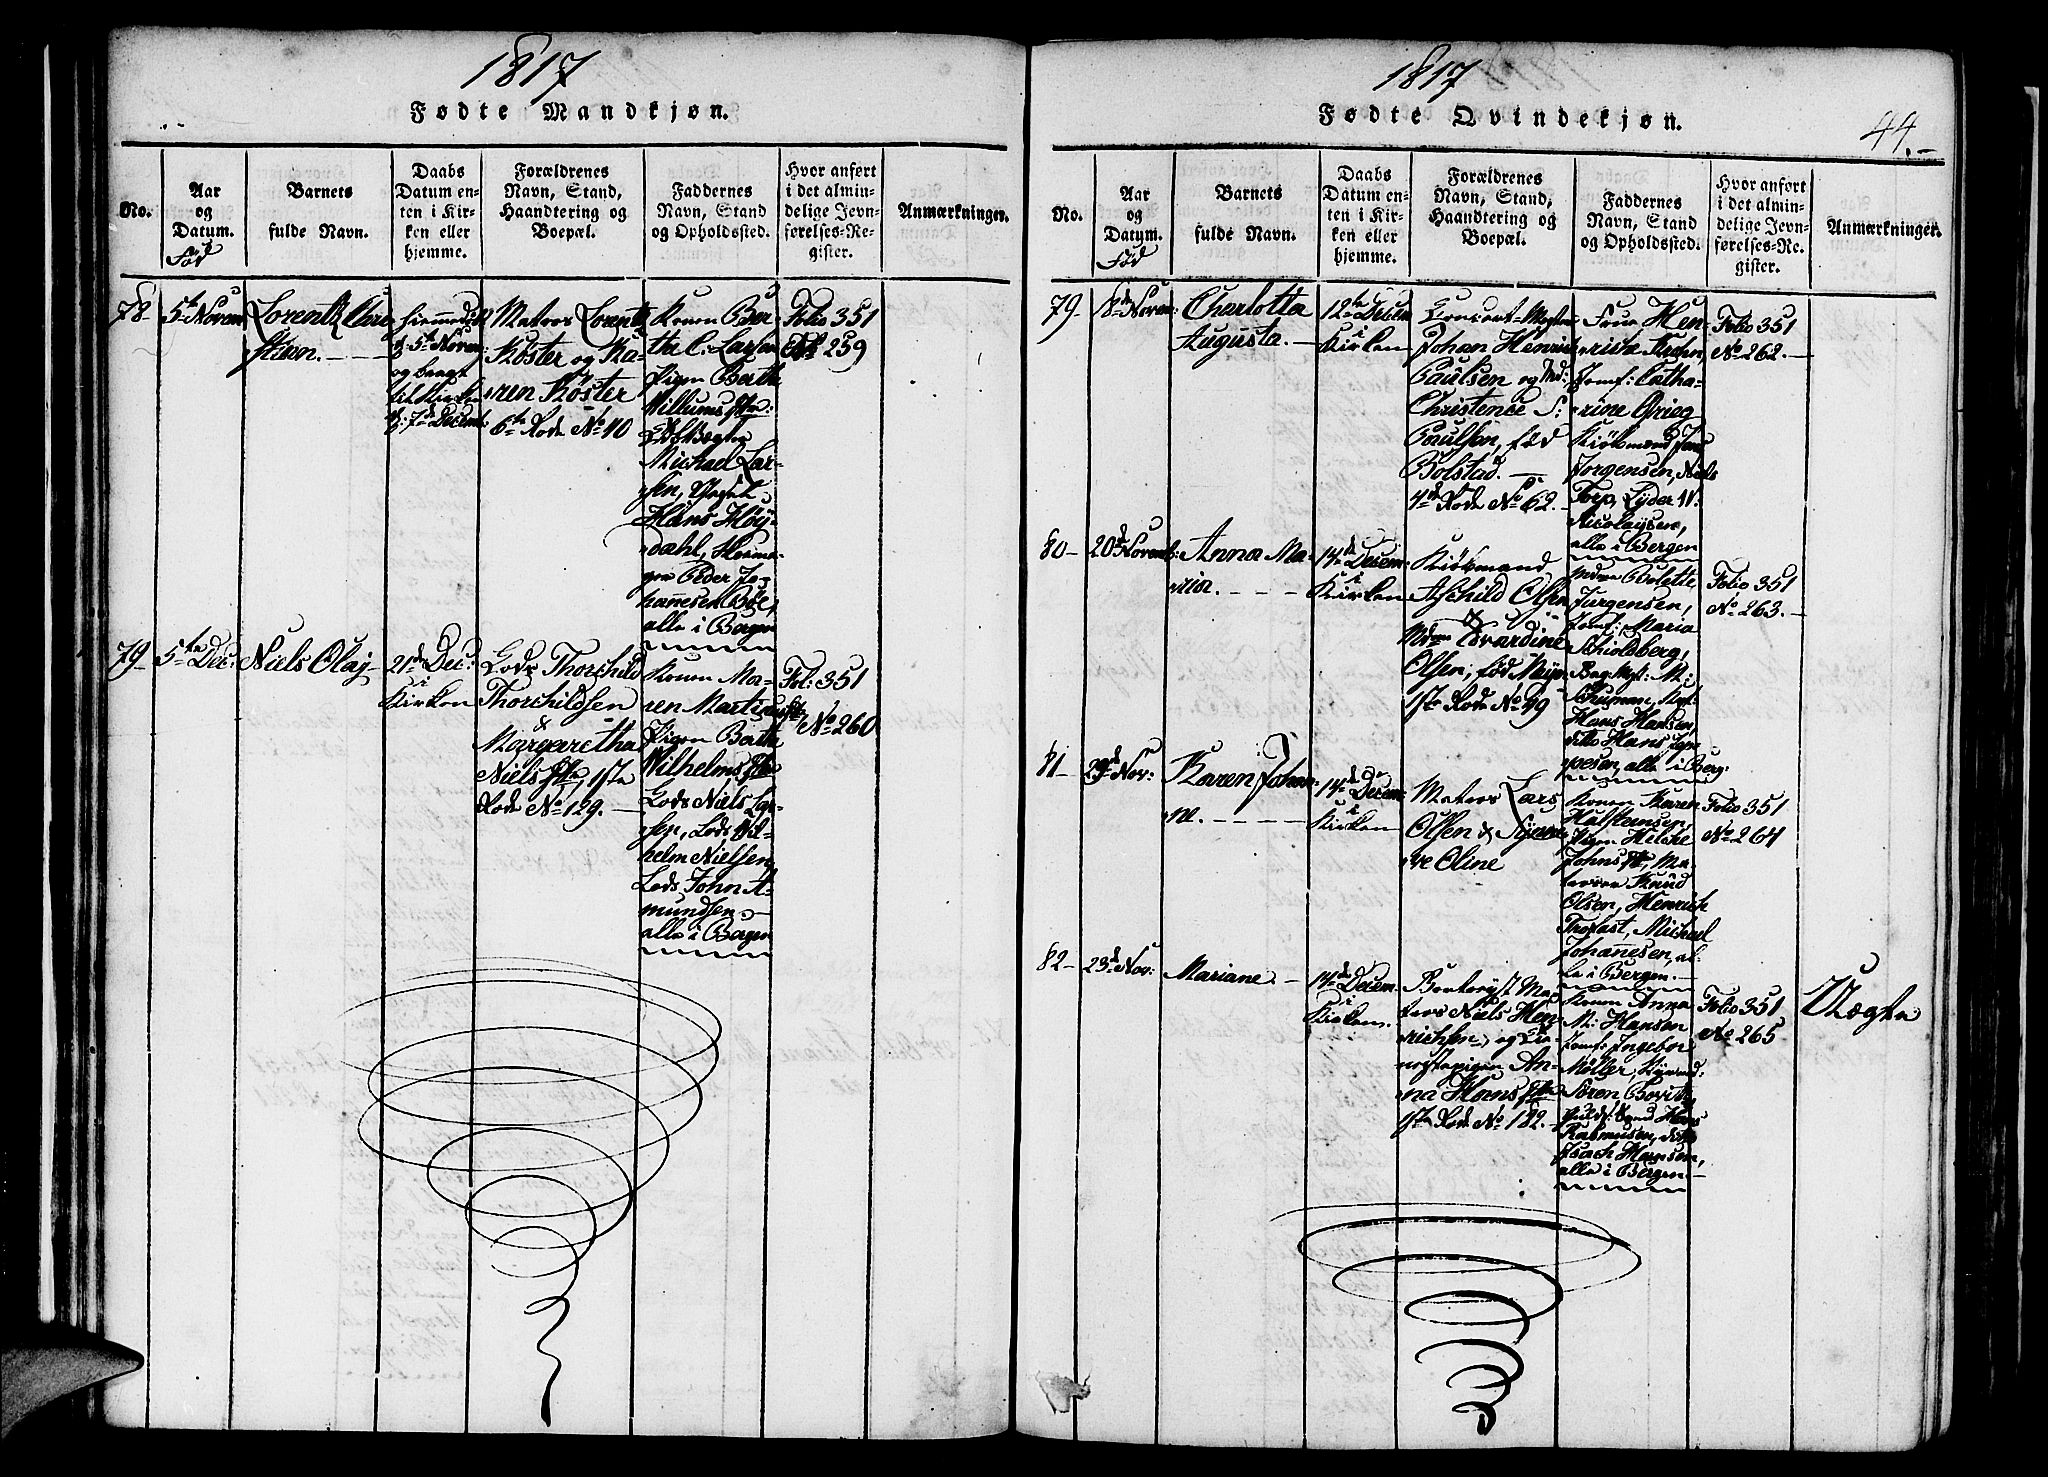 1817
Fødte Mandkjøn.
No.
Aar
og
Datum.
Fød
Barnets
fulde Navn.
Daabs
Datum en-
ten i Kir-
ken eller
hjemme.
Forældrenes
Navn, Stand,
Haandtering og
Boepæl.
Faddernes
Navn, Stand
og Opholdssted.
Hvor anført
i det almin-
delige Jevn-
førelses-Re-
gister.
Anmærkninger.
78
5te Novem
Lorentz
hiemmed:
d: 5te Novem:
og bragt
til Kirken
d: 7de Decemb:
Matros Lorentz
Köster og Ka-
ren Köster
6te Rode No 40
Konen Ber-
tha C: Larsen
Pigen Berthe
Willums
Michael Lar-
sen,
Hans Höy-
dahl,
Peder Jo-
hannesen Böe,
alle i Bergen
Folio 351
No 259
79
5te Dec:
Niels Olaj
21de Dec:
i
Kirken
Lods Thorchild
Thorchildsen
&
Margaretha
Niels 1ste
Rode No 129.
Konen Ma-
ren Martinus
Pigen Berthe
Wilhelms
Lods Niels Lar-
sen, Lods Wil-
helm Nielsen,
Lods John A-
mundsen
alle i Bergen
Fol: 351
No 260
1817
Fødte Qvindekjøn.
44.-
No.
Aar
og
Datum.
Fød
Barnets
fulde Navn.
Daabs
Datum en-
ten i Kir-
ken eller
hjemme.
Forældrenes
Navn, Stand,
Haandtering og
Boepæl.
Faddernes
Navn, Stand
og Opholdssted.
Hvor anført
i det almin-
delige Jevn-
førelses-Re-
gister.
Anmærkninger.
79-
18de Novem:
Charlotta
Augusta.
12te Decem
i
Kirken
Johan Henrich
Paulsen og Md:
Christence S:
Paulsen, fød
Bolstad.
4de Rode No 62.
Frue Hen-
rica Krohn,
Jomf: Catha-
rine Grieg
Kiöbmænd Jens
Jorgensen, Niels
Torp, Lyder W.
Nicolaysen,
alle i Bergen
Folio 351
No 262.
80-
20de Novemb:
Anna Ma-
ria.
14de Decem:
i
Kirken
Kiöbmand
Aschild Olsen
&
Mdme Evardine
Olsen, fød Meyer
1ste Rode No 49
Mdme Bolette
Jurgensen,
Jomf: Maria
Schioldberg,
M:
Schuman,
Hans Hansen
ditto Hans Jep-
pesen, alle i Berg:
Folio 351
No 263.
81-
Nov:
Karen Johan-
ne.
14de Decem
i
Kirken
Matros Lars
Olsen &
Oline
Konen Karen
Halstensen
Pigen Helche
Johns Ma-
troser Knud
Olsen, Henrich
Trofast, Michael
Johannesen, al-
le i Bergen.
Folio 351
No 264
82-
23de Nov:
Mariane.
14de Decem
i
Kirken.
Ma-
tros Niels Hen-
richsen, og
An-
na Hans
1ste Rode No 182.
Konen Anna
M: Hansen
Jomf: Ingebor
Möller,
Sören
Hans
Rasmusen, ditto
Isach Hansen,
alle i Bergen.
Folio 351
No 265
Uægte